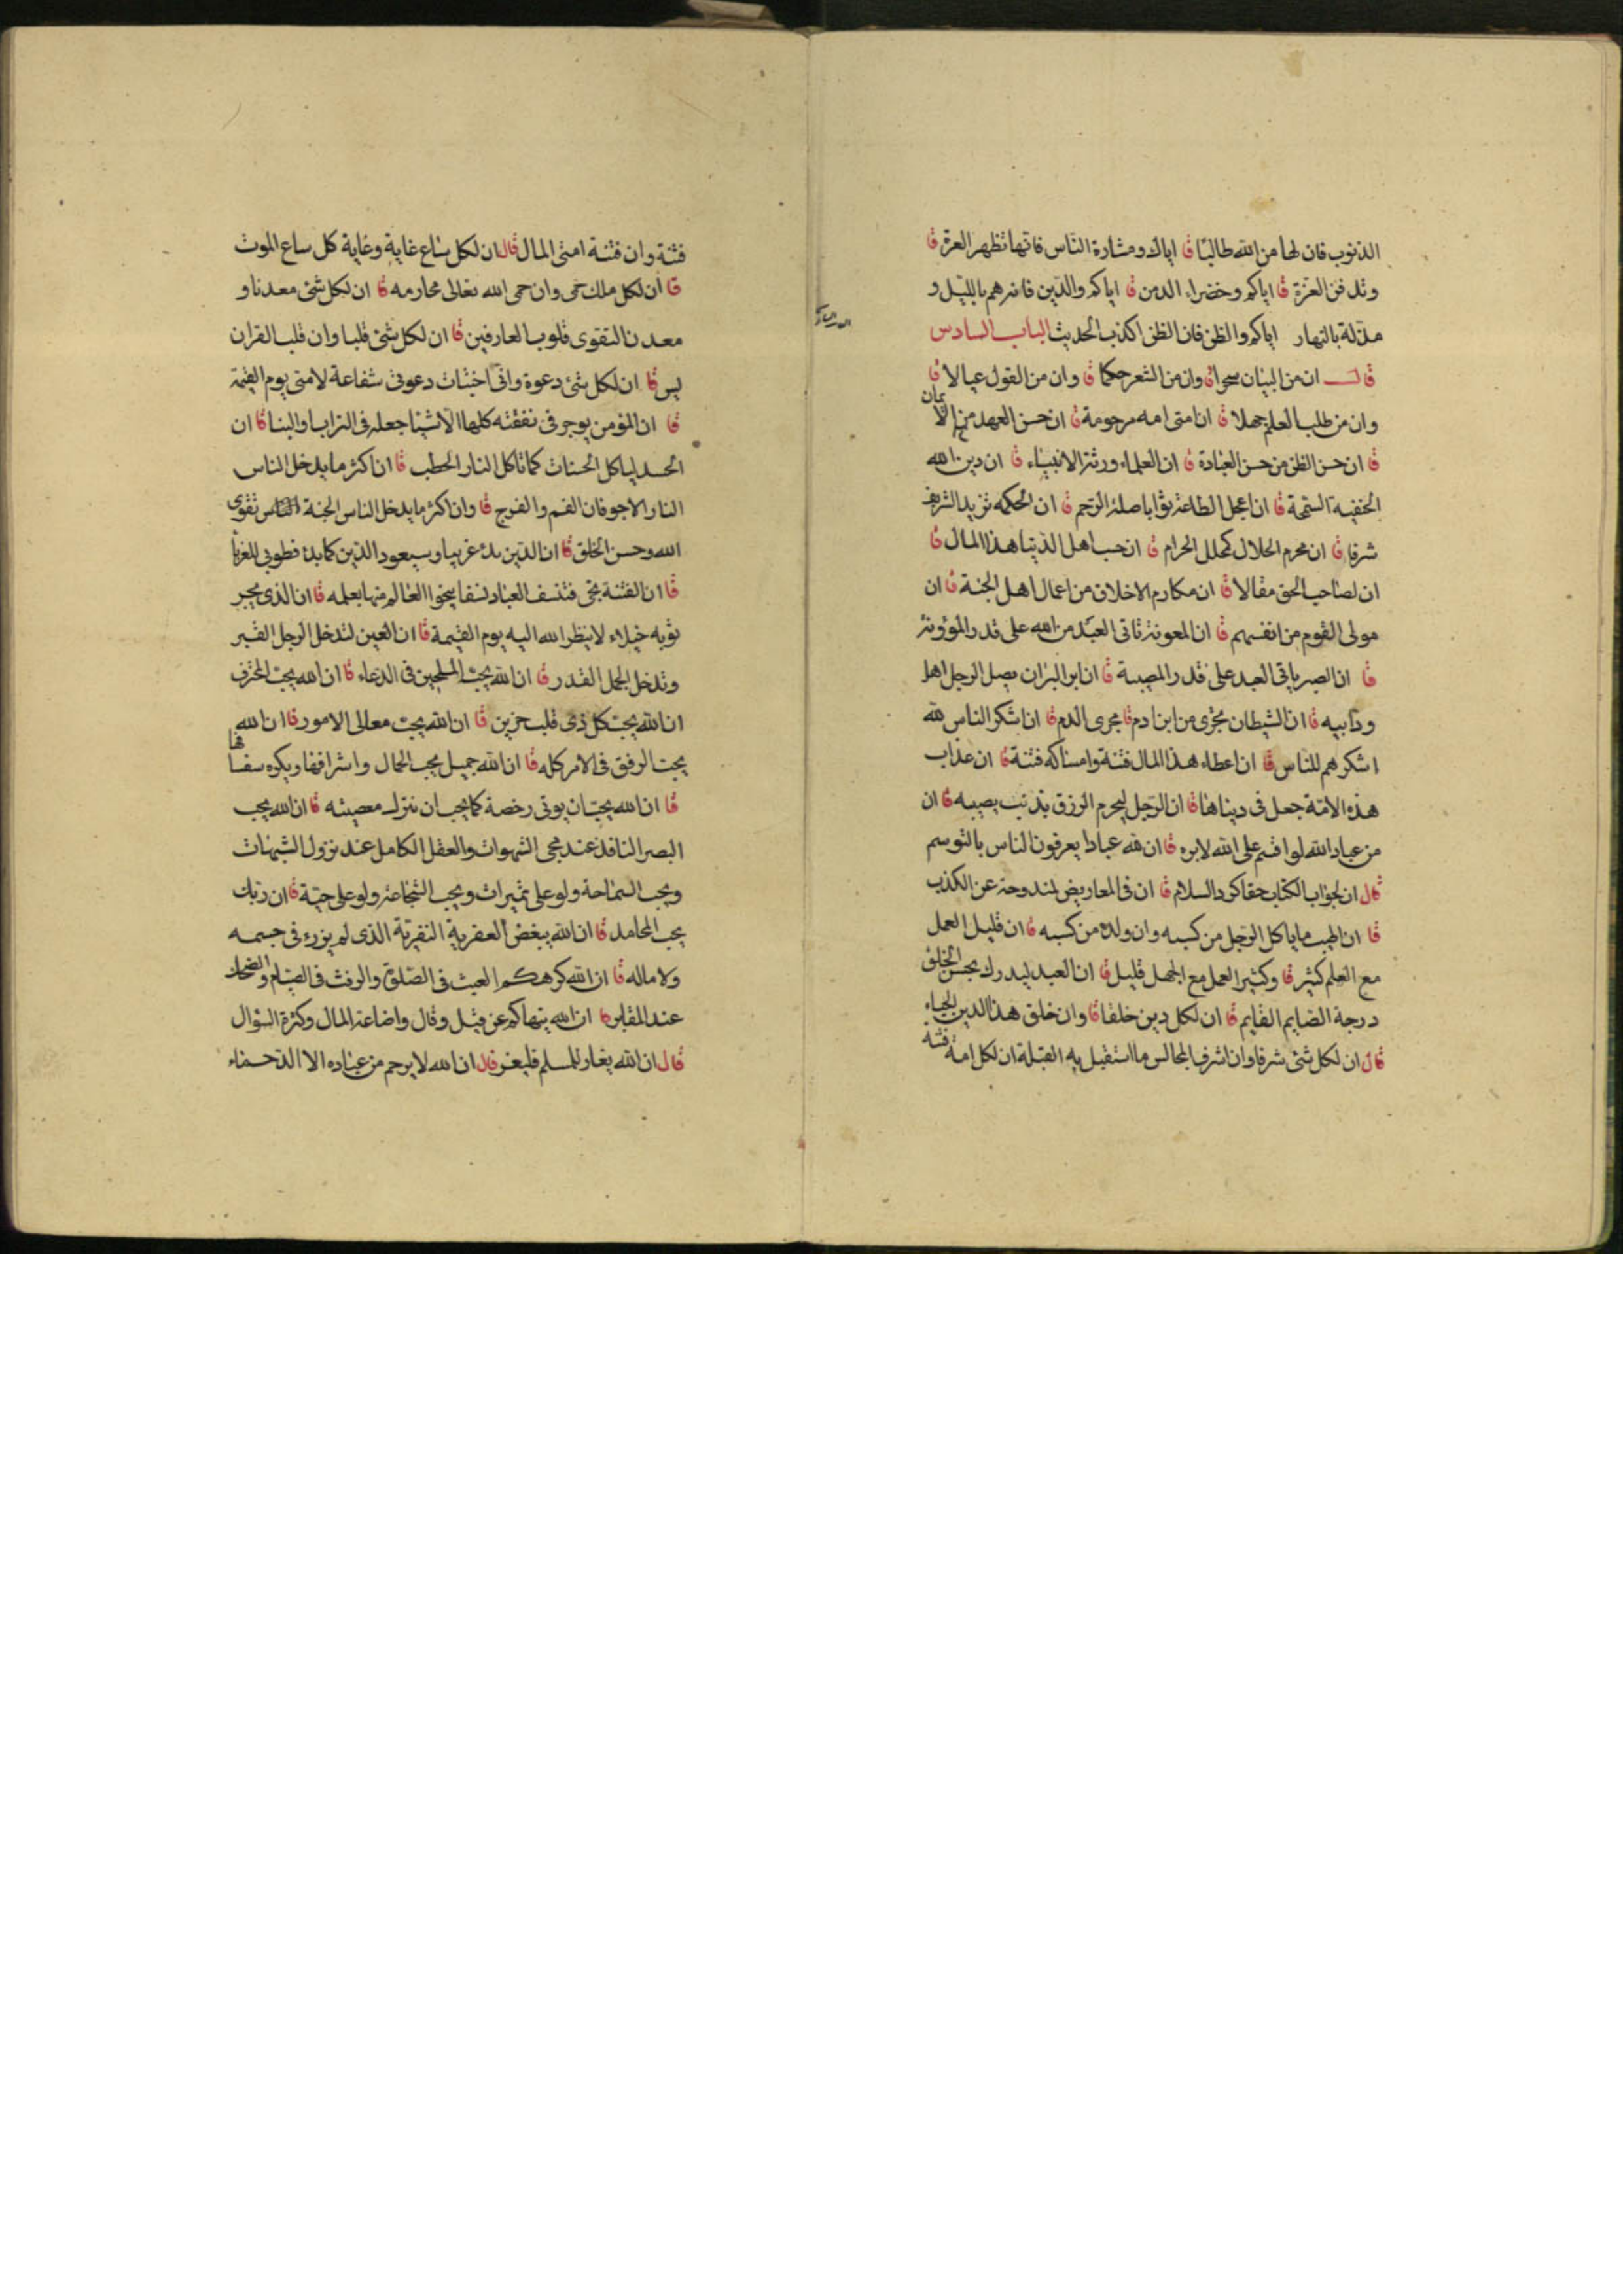 الذنوب فان لها من الله طالبا قا اياك ومشارة الناس فانها تظهر العرة قا
وتدفن العزة قا اياكم وخضراء الدمن قا اياكم والدين فانه هم بالليل و
مذلة بالنهار اياكم والظن فان الظن اكذب الحديث الباب السادس
قال ان من البيان سحرا قا وان من الشعر حكما قا وان من القول عيالا قا
وان من طلب العلم جهلا قا ان امتى امه مرحومة قا ان حسن العهد من الايمان
قا ان حسن الظن من حسن العبادة قا ان العلماء ورثة الانبياء قا ان دين الله
الحنفية السمحة قا ان اعجل الطاعة ثوابا صلة الرحم قا ان الحكمه تزيد الشريف
شرفا قا ان محرم الحلال كمحلل الحرام قا ان حساب اهل الدنيا هذا المال قا
ان لصاحب الحق مقالا قا ان مكارم الاخلاق من اعمال اهل الجنة قا ان
مولى القوم من انفسهم قا ان المعونة تاتى العبد من الله على قدر المؤونة
قا ان الصبر ياتى العبد على قدر المصيبة قا ان ابر البر ان يصل الرجل اهل
ود ابيه قا ان الشيطان يجرى من ابن ادم قا مجرى الدم قا ان اشكر الناس لله
اشكرهم للناس قا ان اعطاء هذا المال فتنة وامساكه فتنة قا ان عذاب
هذه الامة جعل فى دنياها قا ان الرجل ليحرم الرزق بذنب يصيبه قا ان
من عباد الله لو اقسم على الله لابره قا ان لله عبادا يعرفون الناس بالتوسم
قال ان لجواب الكتاب حقا كرد السلام قا ان فى المعاريض لمندوحة عن الكذب
قا ان اطيب ما ياكل الرجل من كسبه وان ولده من كسبه قا ان قليل العمل
مع العلم كثير قا وكثير العمل مع الجهل قليل قا ان العبد ليدرك بحسن الخلق
درجة الصايم القايم قا ان لكل دين خلقا قا وان خلق هذا الدين الحياء
قال ان لكل شئ شرفا وان اشرف المجالس ما استقبل به القبلة ان لكل امة فتنة
فتنة وان فتنة امتى المال قال ان لكل ساع غاية وغاية كل ساع الموت
قا ان لكل ملك حمى وان حمى الله تعالى محارمه قا ان لكل شئ معدنا و
معدن التقوى قلوب العارفين قا ان لكل شئ قلبا وان قلب القران
يس قا ان لكل شئ دعوة وانى اختبات دعوتى شفاعة لامتى يوم القيمة
قا ان المؤمن يوجر فى نفقته كلها الا شيئا جعله فى التراب او البنا قا ان
الحسد لياكل الحسنات كما تاكل النار الحطب قا ان اكثر ما يدخل الناس
النار الاجوفان الفم والفرج قا وان اكثر ما يدخل الناس الجنة تقوى
الله وحسن الخلق قا ان الدين بدء غريبا وسيعود الدين كما بدء فطوبى للغربا
قا ان الفتنة تجئ فتنسف العباد نسفا ينجوا العالم منها بعلمه قا ان الذى يجر
ثوبه خيلاء لا ينظر الله اليه يوم القيمة قا ان العين لتدخل الرجل القبر
وتدخل الجمل القدر قا ان الله يحب الملحين فى الدعاء قا ان الله يحب المحترف
ان الله يحب كل ذى قلب حزين قا ان الله يحب معالى الامور قا ان الله
يحب الرفق فى الامر كله قا ان الله جميل يحب الجمال واشرافها ويكره سفسافها
قا ان الله يحب ان يوتى رخصة كما يحب ان تترك معصيته قا ان الله يحب
البصر النافذ عند مجى الشهوات والعقل الكامل عند نزول الشبهات
ويحب السماحة ولو على تميرات ويحب الشجاعة ولو على حية قا ان ربك
يحب المحامد قا ان الله يبغض العفرية النفرية الذى لم يزرء فى جسمه
ولا ماله قا ان الله كره لكم العبث فى الصلوة والرفث فى الصيام والضحك
عند المقابر قا ان الله ينهاكم عن قيل وقال واضاعة المال وكثرة السؤال
قال ان الله يغار للمسلم فليغر قال ان الله لا يرحم من عباده الا الرحماء